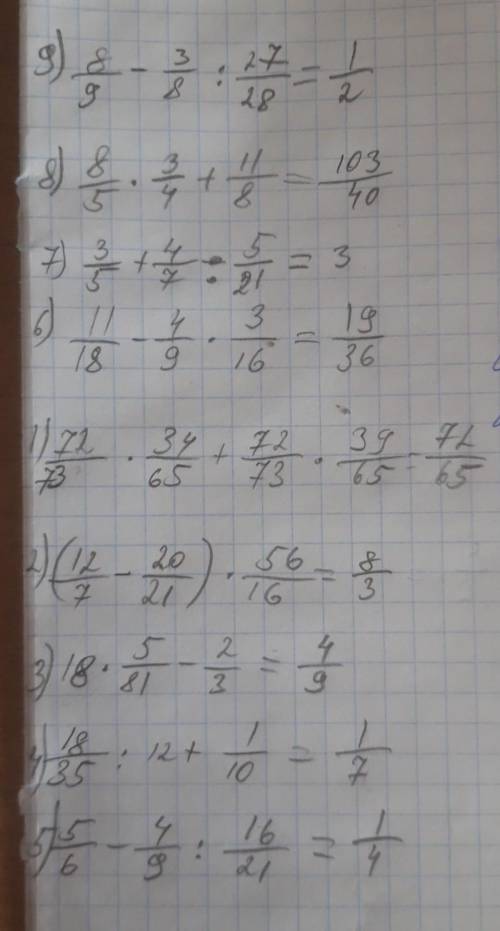 9) 8/9 - 3/8 : 27/28 = 1/2
8) 8/5 · 3/4 + 11/8 = 103/40
7) 3/5 + 4/7 : 5/21 = 3
6) 11/18 - 4/9 · 3/16 = 19/36
1) 72/73 · 34/65 + 72/73 · 39/65 = 72/65
2) (12/7 - 20/21) · 56/16 = 8/3
3) 18 · 5/81 - 2/3 = 4/9
4) 18/35 : 12 + 1/10 = 1/7
5) 5/6 - 4/9 : 16/21 = 1/4